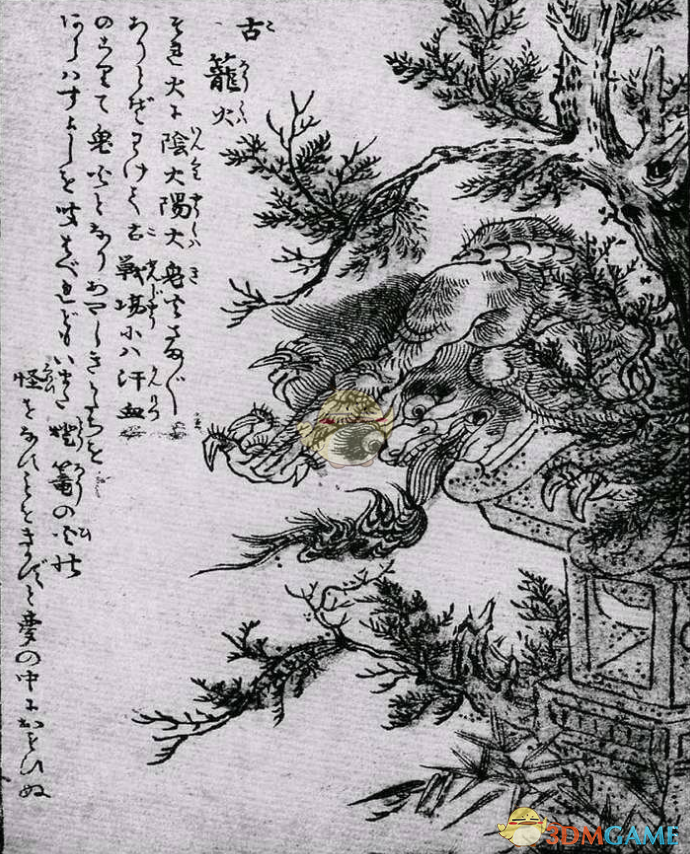 古籠火
それ火に陰火陽火鬼火さま〴〵
ありとぞわけて古戦場には汗血
のこりて鬼火となりあやしきかたちを
あらはすよしを聞はべれどもいまだ燈篭の火の
怪をなすことをきかずと夢の中におもひぬ
3DMGAME